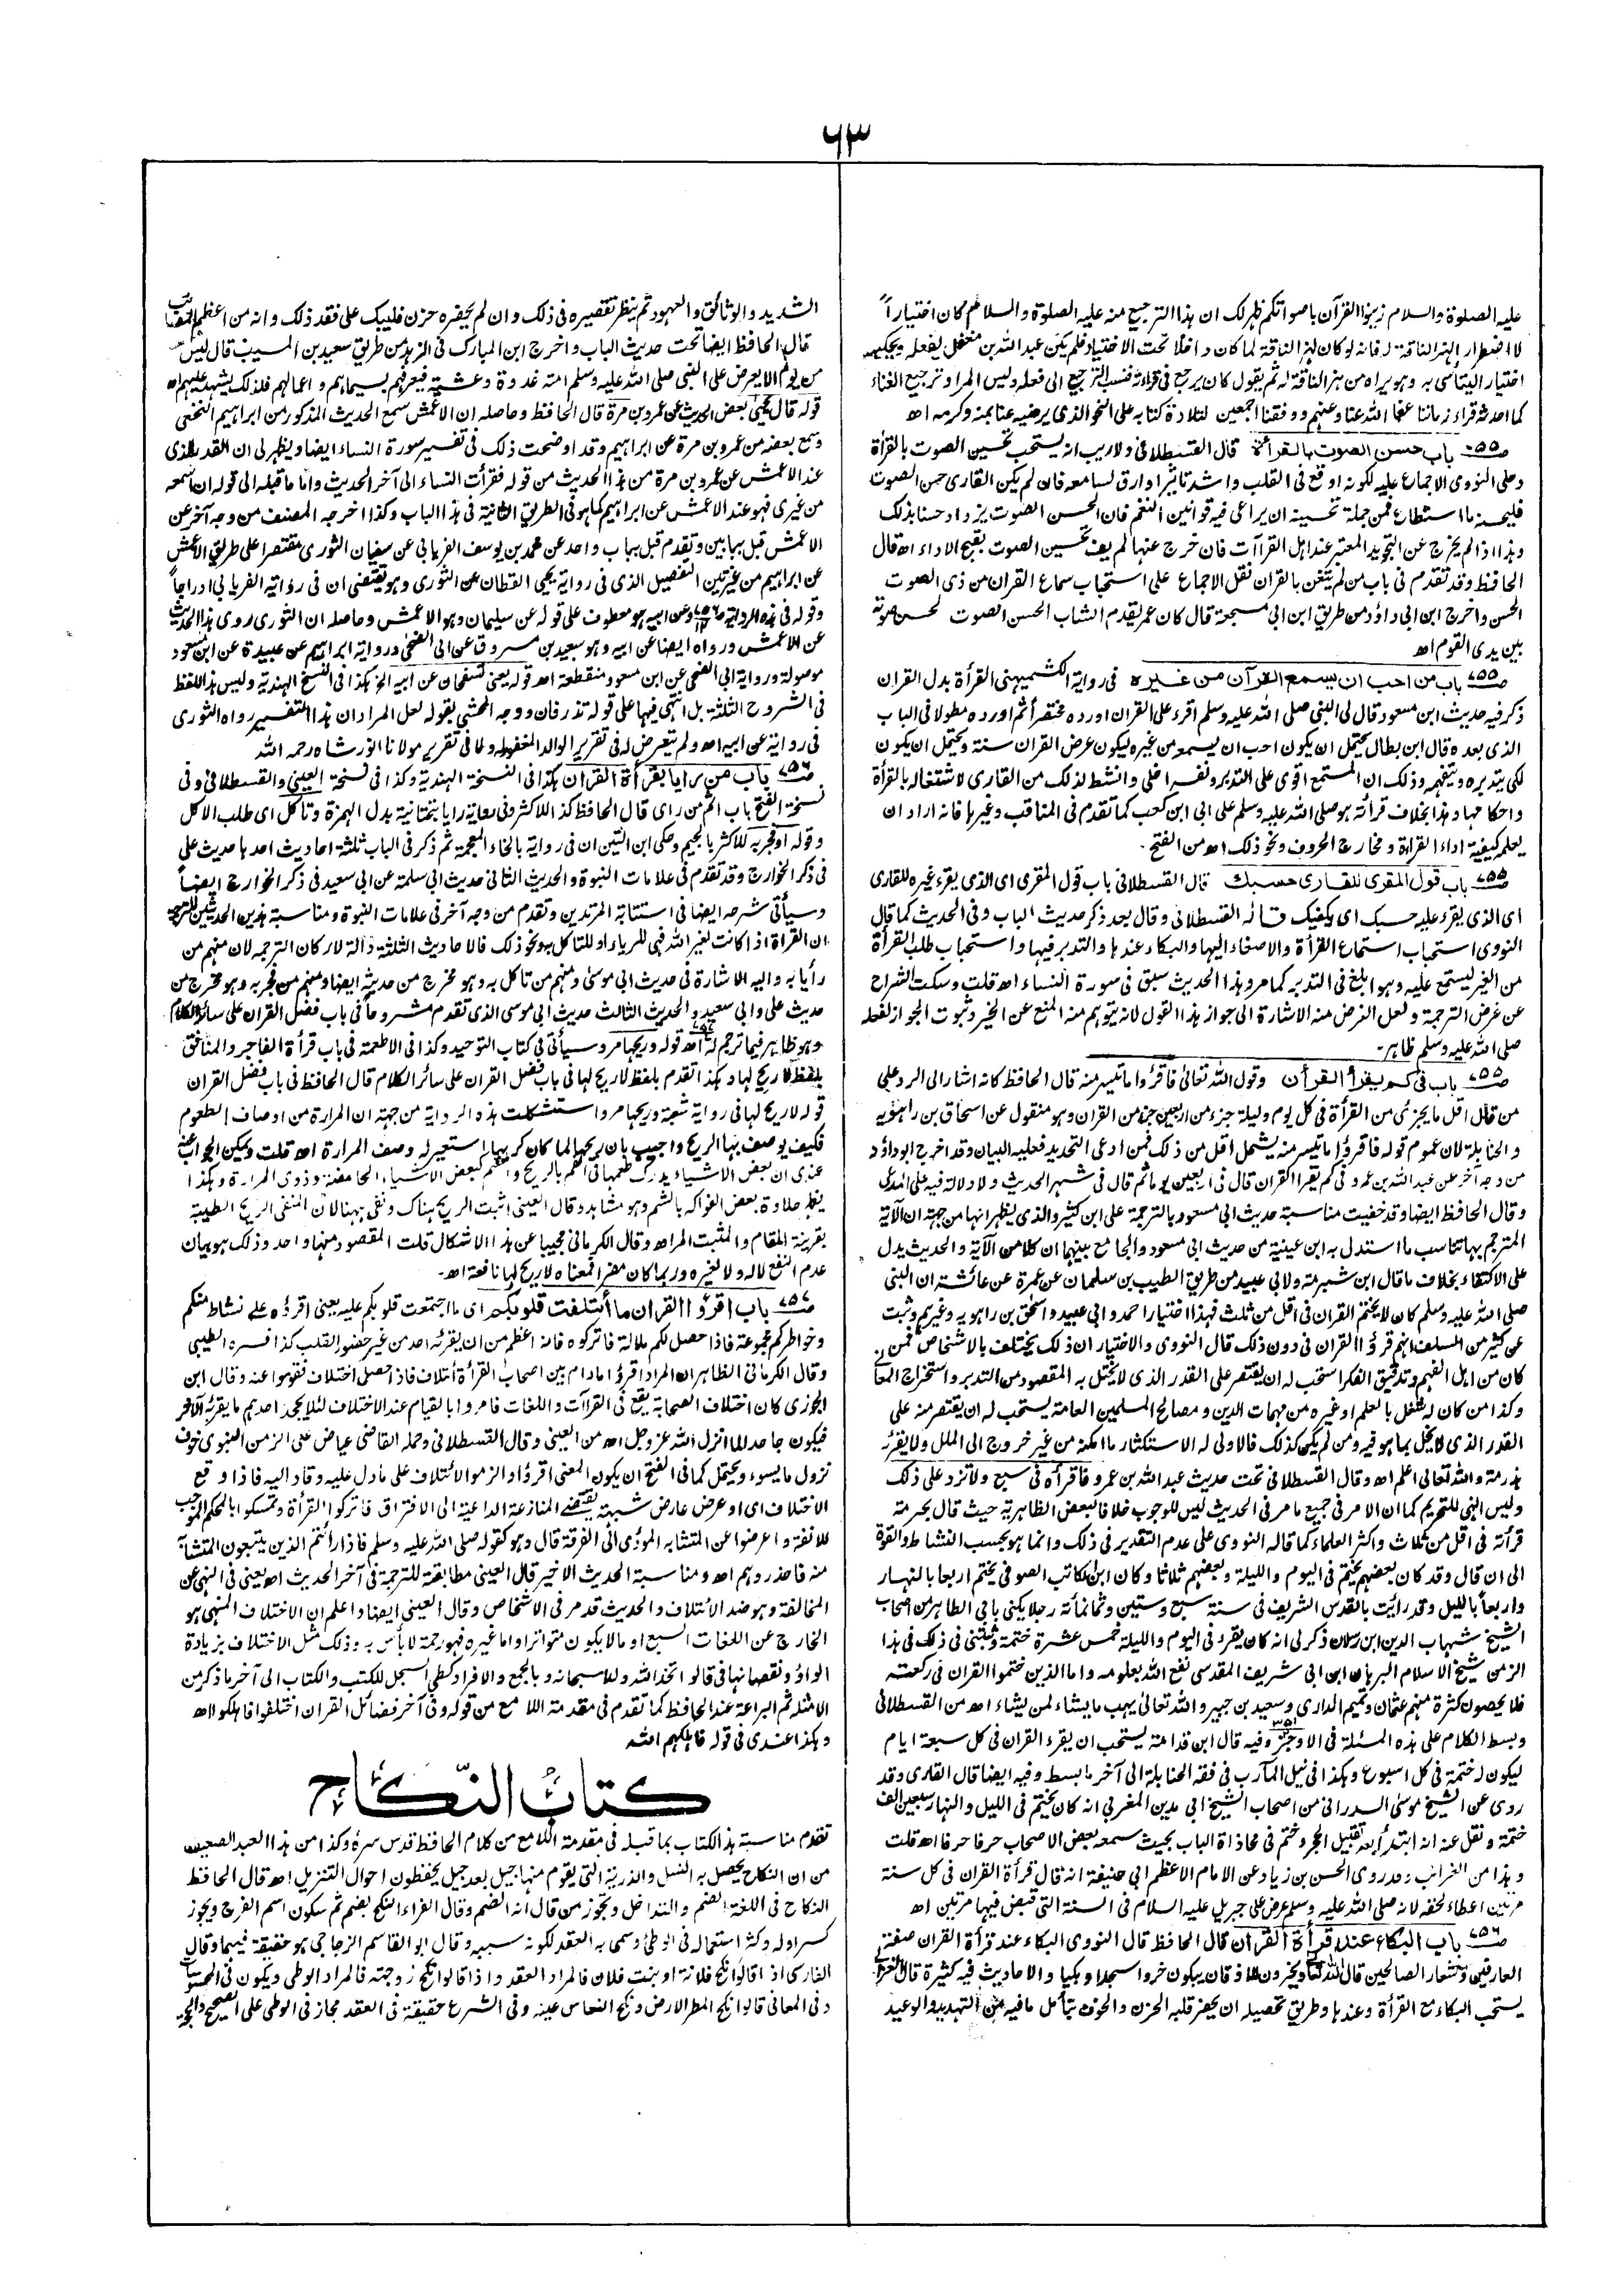 ٦٣
عليه الصلوة والسلام زينوا القرآن باصواتكم ظهر لك ان هذا الترجيع منه عليه الصلوة والسلام كان اختياراً
لا اضطرار الهز الناقة له فانه لو كان لهز الناقة لما كان داخلا تحت الاختيار فلم يكن عبد الله بن مغفل يفعله ويحكيه
اختيار اليتاسى به وهو يراه من هز الناقة له ثم يقول كان يرجع فى قراءته فنسب الترجيع الى فعله وليس المراد ترجيع الغناء
كما احدثه قراء زماننا عفا الله عنا وعنهم ووفقنا اجمعين لتلاوة كتابه على النحو الذى يرضيه عنا بمنه وكرمه اھ
٧٥٥ باب حسن الصوت بالقرأة قال القسطلانى ولا ريب انه يستحب تحسين الصوت بالقرأة
وحكى النووى الاجماع عليه لكونه اوقع فى القلب واشد تاثيرا وارق لسامعه فان لم يكن القارى حسن الصوت
فليحسنه ما استطاع فمن جملة تحسينه ان يراعى فيه قوانين النغم فان الحسن الصوت يزداد حسنا بذلك
وهذا اذا لم يخرج عن التجويد المعتبر عند اهل القراآت فان خرج عنها لم يف تحسين الصوت بقبح الاداء اھ قال
الحافظ وقد تقدم فى باب من لم يتغن بالقران نقل الاجماع على استحباب سماع القران من ذى الصوت
الحسن واخرج ابن ابى داؤد من طريق ابن ابى مسجعة قال كان عمر يقدم الشاب الحسن الصوت لحسن صوته
بين يدى القوم اھ
٧٥٥ باب من احب ان يسمع القرآن من غيره فى رواية الكشميهنى القرأة بدل القران
ذكر فيه حديث ابن مسعود قال لى النبى صلى الله عليه وسلم اقرء على القران اورده مختصرا ثم اورده مطولا فى الباب
الذى بعده قال ابن بطال يحتمل ان يكون احب ان يسمعه من غيره ليكون عرض القران سنة ويحتمل ان يكون
لكى يتدبره ويتفهمه وذلك ان المستمع اقوى على التدبر ونفسه اخلى وانشط لذلك من القارى لاشتغاله بالقرأة
واحكامها وهذا بخلاف قرائته هو صلى الله عليه وسلم على ابى ابن كعب كما تقدم فى المناقب وغيرها فانه اراد ان
يعلمه كيفية اداء القراءة ومخارج الحروف ونحو ذلك اھ من الفتح۔
٧٥٥ باب قول المقرى للقارى حسبك قال القسطلانى باب قول المقرى اى الذى يقرء غيره للقارى
اى الذى يقرء عليه حسبك اى يكفيك قاله القسطلانى وقال بعد ذكر حديث الباب وفى الحديث كما قال
النووى استحباب استماع القرأة والاصغاء اليها والبكاء عندها والتدبر فيها واستحباب طلب القرأة
من الغير ليستمع عليه وهو ابلغ فى التدبر كما مر وهذا الحديث سبق فى سورة النساء اھ قلت وسكت الشراح
عن غرض الترجمة ولعل الغرض منه الاشارة الى جواز هذا القول لانه يتوهم منه المنع عن الخير وثبوت الجواز لفعله
صلى الله عليه وسلم ظاهر۔
٧٥٥ باب فى كم يقرأ القرآن وقول الله تعالى فاقرؤا ما تيسر منه قال الحافظ كانه اشار الى الرد على
من قال اقل ما يجزئ من القرأة فى كل يوم وليلة جزء من اربعين جزءا من القران وهو منقول عن اسحاق بن راهويه
والحنابلة لان عموم قوله فاقرؤا ما تيسر منه يشمل اقل من ذلك فمن ادعى التحديد فعليه البيان وقد اخرج ابو داؤد
من وجه آخر عن عبد الله بن عمرو فى كم يقرأ القران قال فى اربعين يوما ثم قال فى شهر الحديث ولا دلالة فيه على المدعى
وقال الحافظ ايضا وقد خفيت مناسبة حديث ابى مسعود بالترجمة على ابن كثير والذى يظهر انها من جهة ان الآية
المترجم بها تناسب ما استدل به ابن عيينة من حديث ابى مسعود والجامع بينهما ان كلا من الآية والحديث يدل
على الاكتفاء بخلاف ما قال ابن شبرمة ولابى عبيد من طريق الطيب بن سلمان عن عمرة عن عائشة ان النبى
صلى الله عليه وسلم كان لا يختم القران فى اقل من ثلث فهذا اختيار احمد وابى عبيد واسحق بن راهويه وغيرهم وثبت
عن كثير من السلف انهم قرؤا القران فى دون ذلك قال النووى والاختيار ان ذلك يختلف بالاشخاص فمن
كان من اهل الفهم وتدقيق الفكر استحب له ان يقتصر على القدر الذى لا يختل به المقصود من التدبر واستخراج المعانى
وكذا من كان له شغل بالعلم او غيره من مهمات الدين ومصالح المسلمين العامة يستحب له ان يقتصر منه على
القدر الذى لا يخل بما هو فيه ومن لم يكن كذلك فالاولى له الاستكثار ما امكنه من غير خروج الى الملل ولا يقرؤ
هذرمة والله تعالى اعلم اھ وقال القسطلانى تحت حديث عبد الله بن عمرو فاقرأه فى سبع ولا تزد على ذلك
وليس النهى للتحريم كما ان الامر فى جميع ما مر فى الحديث ليس للوجوب خلافا لبعض الظاهرية حيث قال بحرمة
قرأته فى اقل من ثلاث واكثر العلماء كما قاله النووى على عدم التقدير فى ذلك وانما هو بحسب النشاط والقوة
الى ان قال وقد كان بعضهم يختم فى اليوم والليلة وبعضهم ثلاثا وكان ابن الكاتب الصوفى يختم اربعا بالنهار
واربعا بالليل وقد رأيت بالقدس الشريف فى سنة سبع وستين وثمانمأئة رجلا يكنى بابى الطاهر من اصحاب
الشيخ شهاب الدين ابن رسلان ذكر لى انه كان يقرء فى اليوم والليلة خمس عشرة ختمة وثبتنى فى ذلك فى هذا
الزمن شيخ الاسلام البرهان ابن ابى شريف المقدسى نفع الله بعلومه واما الذين ختموا القران فى ركعة
فلا يحصون كثرة منهم عثمان وتميم الدارى وسعيد بن جبير والله تعالى يهب ما يشاء لمن يشاء اھ من القسطلانى
وبسط الكلام على هذه المسئلة فى الاوجز وفيه قال ابن قدامة يستحب ان يقرء القران فى كل سبعة ايام
ليكون له ختمة فى كل اسبوع وهكذا فى نيل المآرب فى فقه الحنابلة الى آخر ما بسط وفيه ايضا قال القارى وقد
روى عن الشيخ موسى السدرانى من اصحاب الشيخ ابى مدين المغربى انه كان يختم فى الليل والنهار سبعين الف
ختمة ونقل عنه انه ابتدأ بعد تقبيل الحجر وختم فى محاذاة الباب بحيث سمعه بعض الاصحاب حرفا حرفا اھ قلت
وهذا من الغرائب وقد روى الحسن بن زياد عن الامام الاعظم ابى حنيفة انه قال قرأة القران فى كل سنة
مرتين اعطاء لحقه لانه صلى الله عليه وسلم عرض على جبريل عليه السلام فى السنة التى قبض فيها مرتين اھ
٧٥٦ باب البكاء عند قرأة القرآن قال الحافظ قال النووى البكاء عند قرأة القران صفة
العارفين وشعار الصالحين قال الله تعالى ويخرون للاذقان يبكون خروا سجدا وبكيا والاحاديث فيه كثيرة قال الغزالى
يستحب البكاء مع القرأة وعندها وطريق تحصيله ان يحضر قلبه الحزن والخوف بتأمل ما فيه من التهديد والوعيد
الشديد والوثائق والعهود ثم ينظر تقصيره فى ذلك وان لم يحضره حزن فليبك على فقد ذلك وانه من اعظم المصائب
قال الحافظ ايضا تحت حديث الباب واخرج ابن المبارك فى الزهد من طريق سعيد بن المسيب قال ليس
من يوم الا يعرض على النبى صلى الله عليه وسلم امته غدوة وعشية فيعرفهم بسيماهم واعمالهم فلذلك يشهد عليهم اھ
قوله قال يحيى بعض الحديث عن عمرو بن مرة قال الحافظ وحاصله ان الاعمش سمع الحديث المذكور من ابراهيم النخعى
وسمع بعضه من عمرو بن مرة عن ابراهيم وقد اوضحت ذلك فى تفسير سورة النساء ايضا ويظهر لى ان القدر الذى
عند الاعمش عن عمرو بن مرة من هذا الحديث من قوله فقرأت النساء الى آخر الحديث واما ما قبله الى قوله ان اسمعه
من غيرى فهو عند الاعمش عن ابراهيم كما هو فى الطريق الثانية فى هذا الباب وكذا اخرجه المصنف من وجه آخر عن
الاعمش قبل ببابين وتقدم قبل بباب واحد عن محمد بن يوسف الفريابى عن سفيان الثورى مقتصرا على طريق الاعمش
عن ابراهيم من غير تبيين التفصيل الذى فى رواية يحيى القطان عن الثورى وهو يقتضى ان فى رواية الفريابى ادراجاً
وقوله فى هذه الرواية وعن ابيه هو معطوف على قوله عن سليمان وهو الاعمش وحاصله ان الثورى روى هذا الحديث
عن الاعمش ورواه ايضا عن ابيه وهو سعيد بن مسروق عن ابى الضحى ورواية ابراهيم عن عبيدة عن ابن مسعود
موصولة ورواية ابى الضحى عن ابن مسعود منقطعة اھ قوله يعنى تنضحان عن ابيه الخ هكذا فى النسخ الهندية وليس هذا اللفظ
فى الشروح الثلثة بل انتهى فيها على قوله تذرفان ووجه المحشى بقوله لعل المراد ان هذا التفسير رواه الثورى
فى رواية عن ابيه اھ ولم يتعرض له فى تقرير الوالد المغفور له ولا فى تقرير مولانا انور شاه رحمه الله
٧٥٦ باب من رايا بقرأة القران هكذا فى النسخة الهندية وكذا فى نسخة العينى والقسطلانى وفى
نسخة الفتح باب اثم من راى قال الحافظ كذا للاكثر وفى رواية رايا بتحتانية بدل الهمزة وتأكل اى طلب الاكل
وقوله او فجر به للاكثر بالجيم وحكى ابن التين ان فى رواية بالخاء المعجمة ثم ذكر فى الباب ثلثة احاديث احدها حديث على
فى ذكر الخوارج وقد تقدم فى علامات النبوة والحديث الثانى حديث ابى سلمة عن ابى سعيد فى ذكر الخوارج ايضاً
وسيأتى شرحه ايضا فى استتابة المرتدين وتقدم من وجه آخر فى علامات النبوة ومناسبة هذين الحديثين للترجمة
ان القراة اذا كانت لغير الله فهى للرياء او للتاكل به ونحو ذلك فالاحاديث الثلثة دالة لاركان الترجمة لان منهم من
رأيا به واليه الاشارة فى حديث ابى موسى ومنهم من تاكل به وهو مخرج من حديثه ايضا ومنهم من فجر به وهو مخرج من
حديث على وابى سعيد والحديث الثالث حديث ابى موسى الذى تقدم مشروحا فى باب فضل القران على سائر الكلام
وهو ظاهر فيما ترجم له اھ قوله وريحها مر وسيأتى فى كتاب التوحيد وكذا فى الاطعمة فى باب قرأة الفاجر والمنافق
بلفظ لا ريح لها وهكذا تقدم بلفظ لا ريح لها فى باب فضل القران على سائر الكلام قال الحافظ فى باب فضل القران
قوله لا ريح لها فى رواية شعبة وريحها مر واستشكلت هذه الرواية من جهة ان المرارة من اوصاف الطعوم
فكيف يوصف بها الريح واجيب بان ريحها لما كان كريها استعير له وصف المرارة اھ قلت ويمكن الجواب عنه
عندى ان بعض الاشياء يدرك طعمها فى الفم بالريح والشم كبعض الاشياء الحامضة وذوى المرارة وهكذا
يظهر حلاوة بعض الفواكه بالشم وهو مشاهد وقال العينى اثبت الريح هناك ونفى ههنا لان المنفى الريح الطيبة
بقرينة المقام والمثبت المر اھ وقال الكرمانى مجيبا عن هذا الاشكال قلت المقصود منهما واحد وذلك هو بيان
عدم النفع لا له ولا لغيره وربما كان مضرا فمعناه لا ريح لها نافعة اھ۔
٧٥٧ باب اقرؤا القران ما ائتلفت قلوبكم اى ما اجتمعت قلوبكم عليه يعنى اقرؤه على نشاط منكم
وخواطركم مجموعة فاذا حصل لكم ملالة فاتركوه فانه اعظم من ان يقرئه احد من غير حضور القلب كذا فسره الطيبى
وقال الكرمانى الظاهر ان المراد اقرؤا ما دام بين اصحاب القرأة أتلاف فاذا حصل اختلاف فقوموا عنه وقال ابن
الجوزى كان اختلاف الصحابة يقع فى القراآت واللغات فامروا بالقيام عند الاختلاف لئلا يجحد احدهم ما يقرئه الآخر
فيكون جاحدا لما انزل الله عز وجل اھ من العينى وقال القسطلانى وحمله القاضى عياض على الزمن النبوى خوف
نزول ما يسوء ويحتمل كما فى الفتح ان يكون المعنى اقرؤا والزموا الائتلاف على ما دل عليه وقاد اليه فاذا وقع
الاختلاف اى او عرض عارض شبهة يقتضى المنازعة الداعية الى الافتراق فاتركوا القرأة وتمسكوا بالمحكم الموجب
للالفة واعرضوا عن المتشابه المؤدى الى الفرقة قال وهو كقوله صلى الله عليه وسلم فاذا رأيتم الذين يتبعون المتشابه
منه فاحذروهم اھ ومناسبة الحديث الاخير قال العينى مطابقته للترجمة فى آخر الحديث اھ يعنى فى النهى عن
المخالفة وهو ضد الائتلاف والحديث قد مر فى الاشخاص وقال العينى ايضا واعلم ان الاختلاف المنهى هو
الخارج عن اللغات السبع او ما لا يكون متواترا واما غيره فهو رحمة لا بأس به وذلك مثل الاختلاف بزيادة
الواؤ ونقصانها فى قالوا اتخذ الله ولدا سبحانه وبالجمع والافراد كطى السجل للكتب والكتاب الى آخر ما ذكر من
الامثلة ثم البراعة عند الحافظ كما تقدم فى مقدمة اللامع من قوله وفى آخر فضائل القران اختلفوا فاهلكوا اھ
وهكذا عندى فى قوله فاهلكهم الله
كتاب النكاح
تقدم مناسبة هذا الكتاب بما قبله فى مقدمة اللامع من كلام الحافظ قدس سره وكذا من هذا العبد الضعيف
من ان النكاح يحصل به النسل والذرية التى يقوم منها جيل بعد جيل يحفظون احوال التنزيل اھ قال الحافظ
النكاح فى اللغة الضم والتداخل وتجوز من قال انه الضم وقال الفراء النكح بضم ثم سكون اسم الفرج ويجوز
كسر اوله وكثر استعماله فى الوطئ وسمى به العقد لكونه سببه وقال ابو القاسم الزجاجى هو حقيقة فيهما وقال
الفارسى اذا قالوا نكح فلانة او بنت فلان فالمراد العقد واذا قالوا نكح زوجته فالمراد الوطى ويكون فى المحسوسات
وفى المعانى قالوا نكح المطر الارض ونكح النعاس عينه وفى الشرع حقيقة فى العقد مجاز فى الوطى على الصحيح والحجة